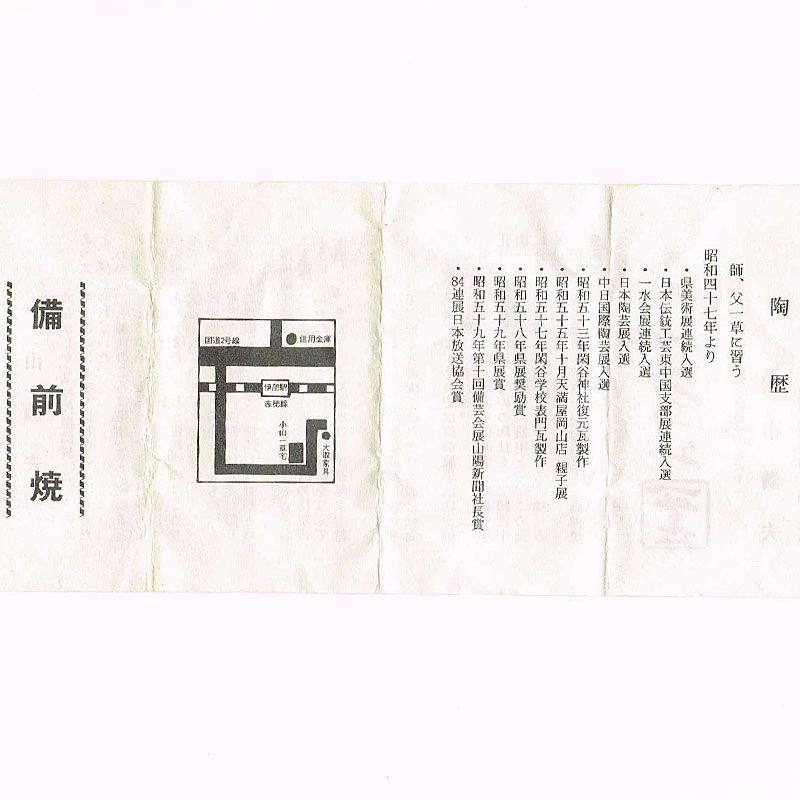 陶歴
師、父一草に習う
昭和四十七年より
・県美術展連続入選
・日本伝統工芸東中国支部展連続入選
・一水会展連続入選
・日本陶芸展入選
・中日国際陶芸展入選
・昭和五十三年閑谷神社復元瓦製作
・昭和五十五年十月天満屋岡山店 親子展
・昭和五十七年閑谷学校表門瓦製作
・昭和五十八年県展奨励賞
・昭和五十九年県展賞
・昭和五十九年第十回備芸会展山陽新聞社長賞
・84連展日本放送協会賞
国道2号線
信用金庫
伊部駅
赤穂線
小山一草宅
大取家具
備前焼